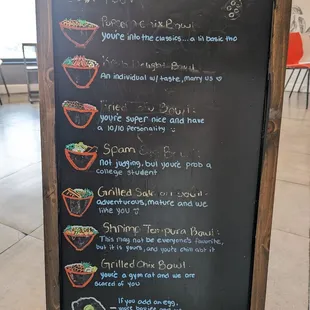 Bowl
you're into the classics...a lil basic tho
Bowl
An individual w/ taste, marry us
Fried Bowl:
you're super nice and have
a 10/10 personality
Spam
not judging, but you're prob a
college student
Grilled Bowl:
adventurous, mature and we
like you
Shrimp Tempura Bowl:
This may not be everyone's favorite,
but it is yours, and you're chill abt it
Grilled Chix Bowl
you're a gym rat and we are
scared of you
If you add an egg,